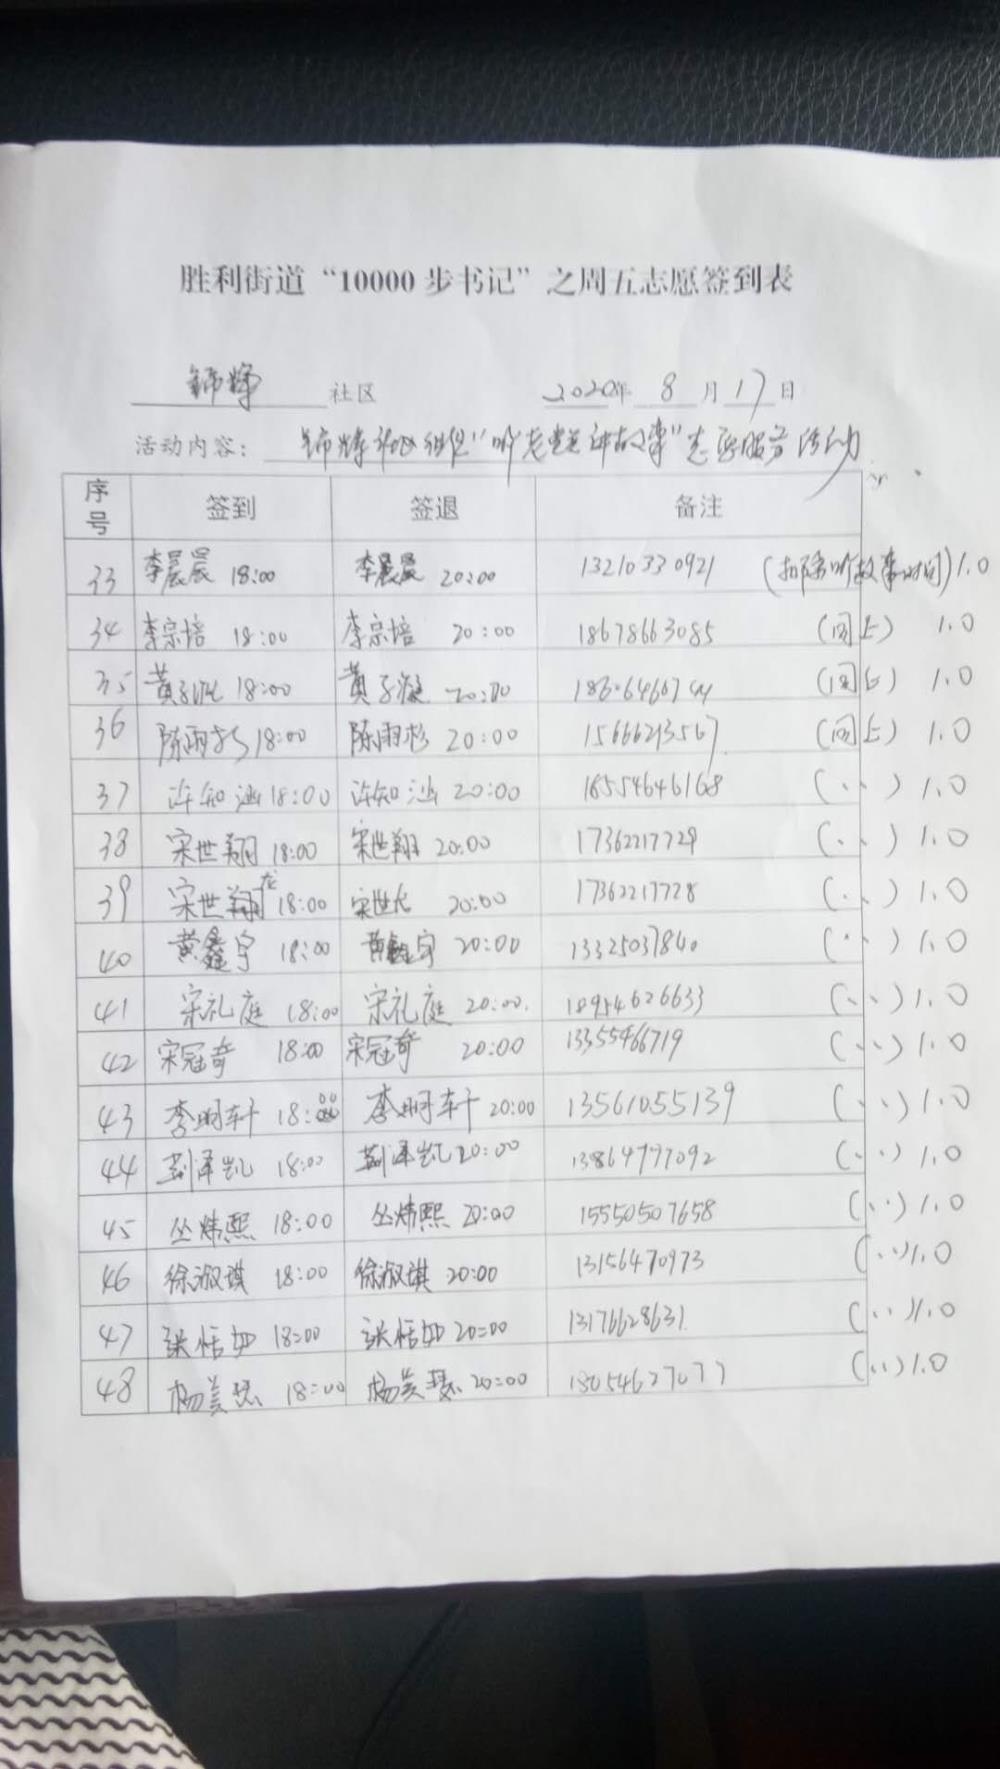 胜利街道“10000 步书记”之周五志愿签到表
锦辉 社区 2020年 8 月 17 日
活动内容: 锦辉社区组织“听老党员讲故事”志愿服务活动
序号 签到 签退 备注
33 李晨晨 18:00 李晨晨 20:00 13210330921 (扣除听故事时间) 1.0
34 李宗培 18:00 李宗培 20:00 18678663085 (同上) 1.0
35 黄子凝 18:00 黄子凝 20:00 (同上) 1.0
36 陈雨杉 18:00 陈雨杉 20:00 15666213567 (同上) 1.0
37 许知涵 18:00 许知涵 20:00 18554646168 (、、) 1.0
38 宋世翔 18:00 宋世翔 20:00 17362217729 (、、) 1.0
39 宋世龙 18:00 宋世龙 20:00 17362217728 (、、) 1.0
40 黄鑫宇 18:00 黄鑫宇 20:00 13325037840 (、、) 1.0
41 宋礼庭 18:00 宋礼庭 20:00. 18954626633 (、、) 1.0
42 宋冠奇 18:00 宋冠奇 20:00 13355466719 (、、) 1.0
43 李明轩 18:00 李明轩 20:00 13561055139 (、、) 1.0
44 泽凯 18:00 泽凯 20:00 13864777092 (、、) 1.0
45 丛炜熙 18:00 丛炜熙 20:00 15550507658 (、、) 1.0
46 徐淑琪 18:00 徐淑琪 20:00 13156470973 (、、) 1.0
47 张恬如 18:00 张恬如 20:00 13176628631 (、、) 1.0
48 杨美瑟 18:00 杨美瑟 20:00 13054627077 (、、) 1.0